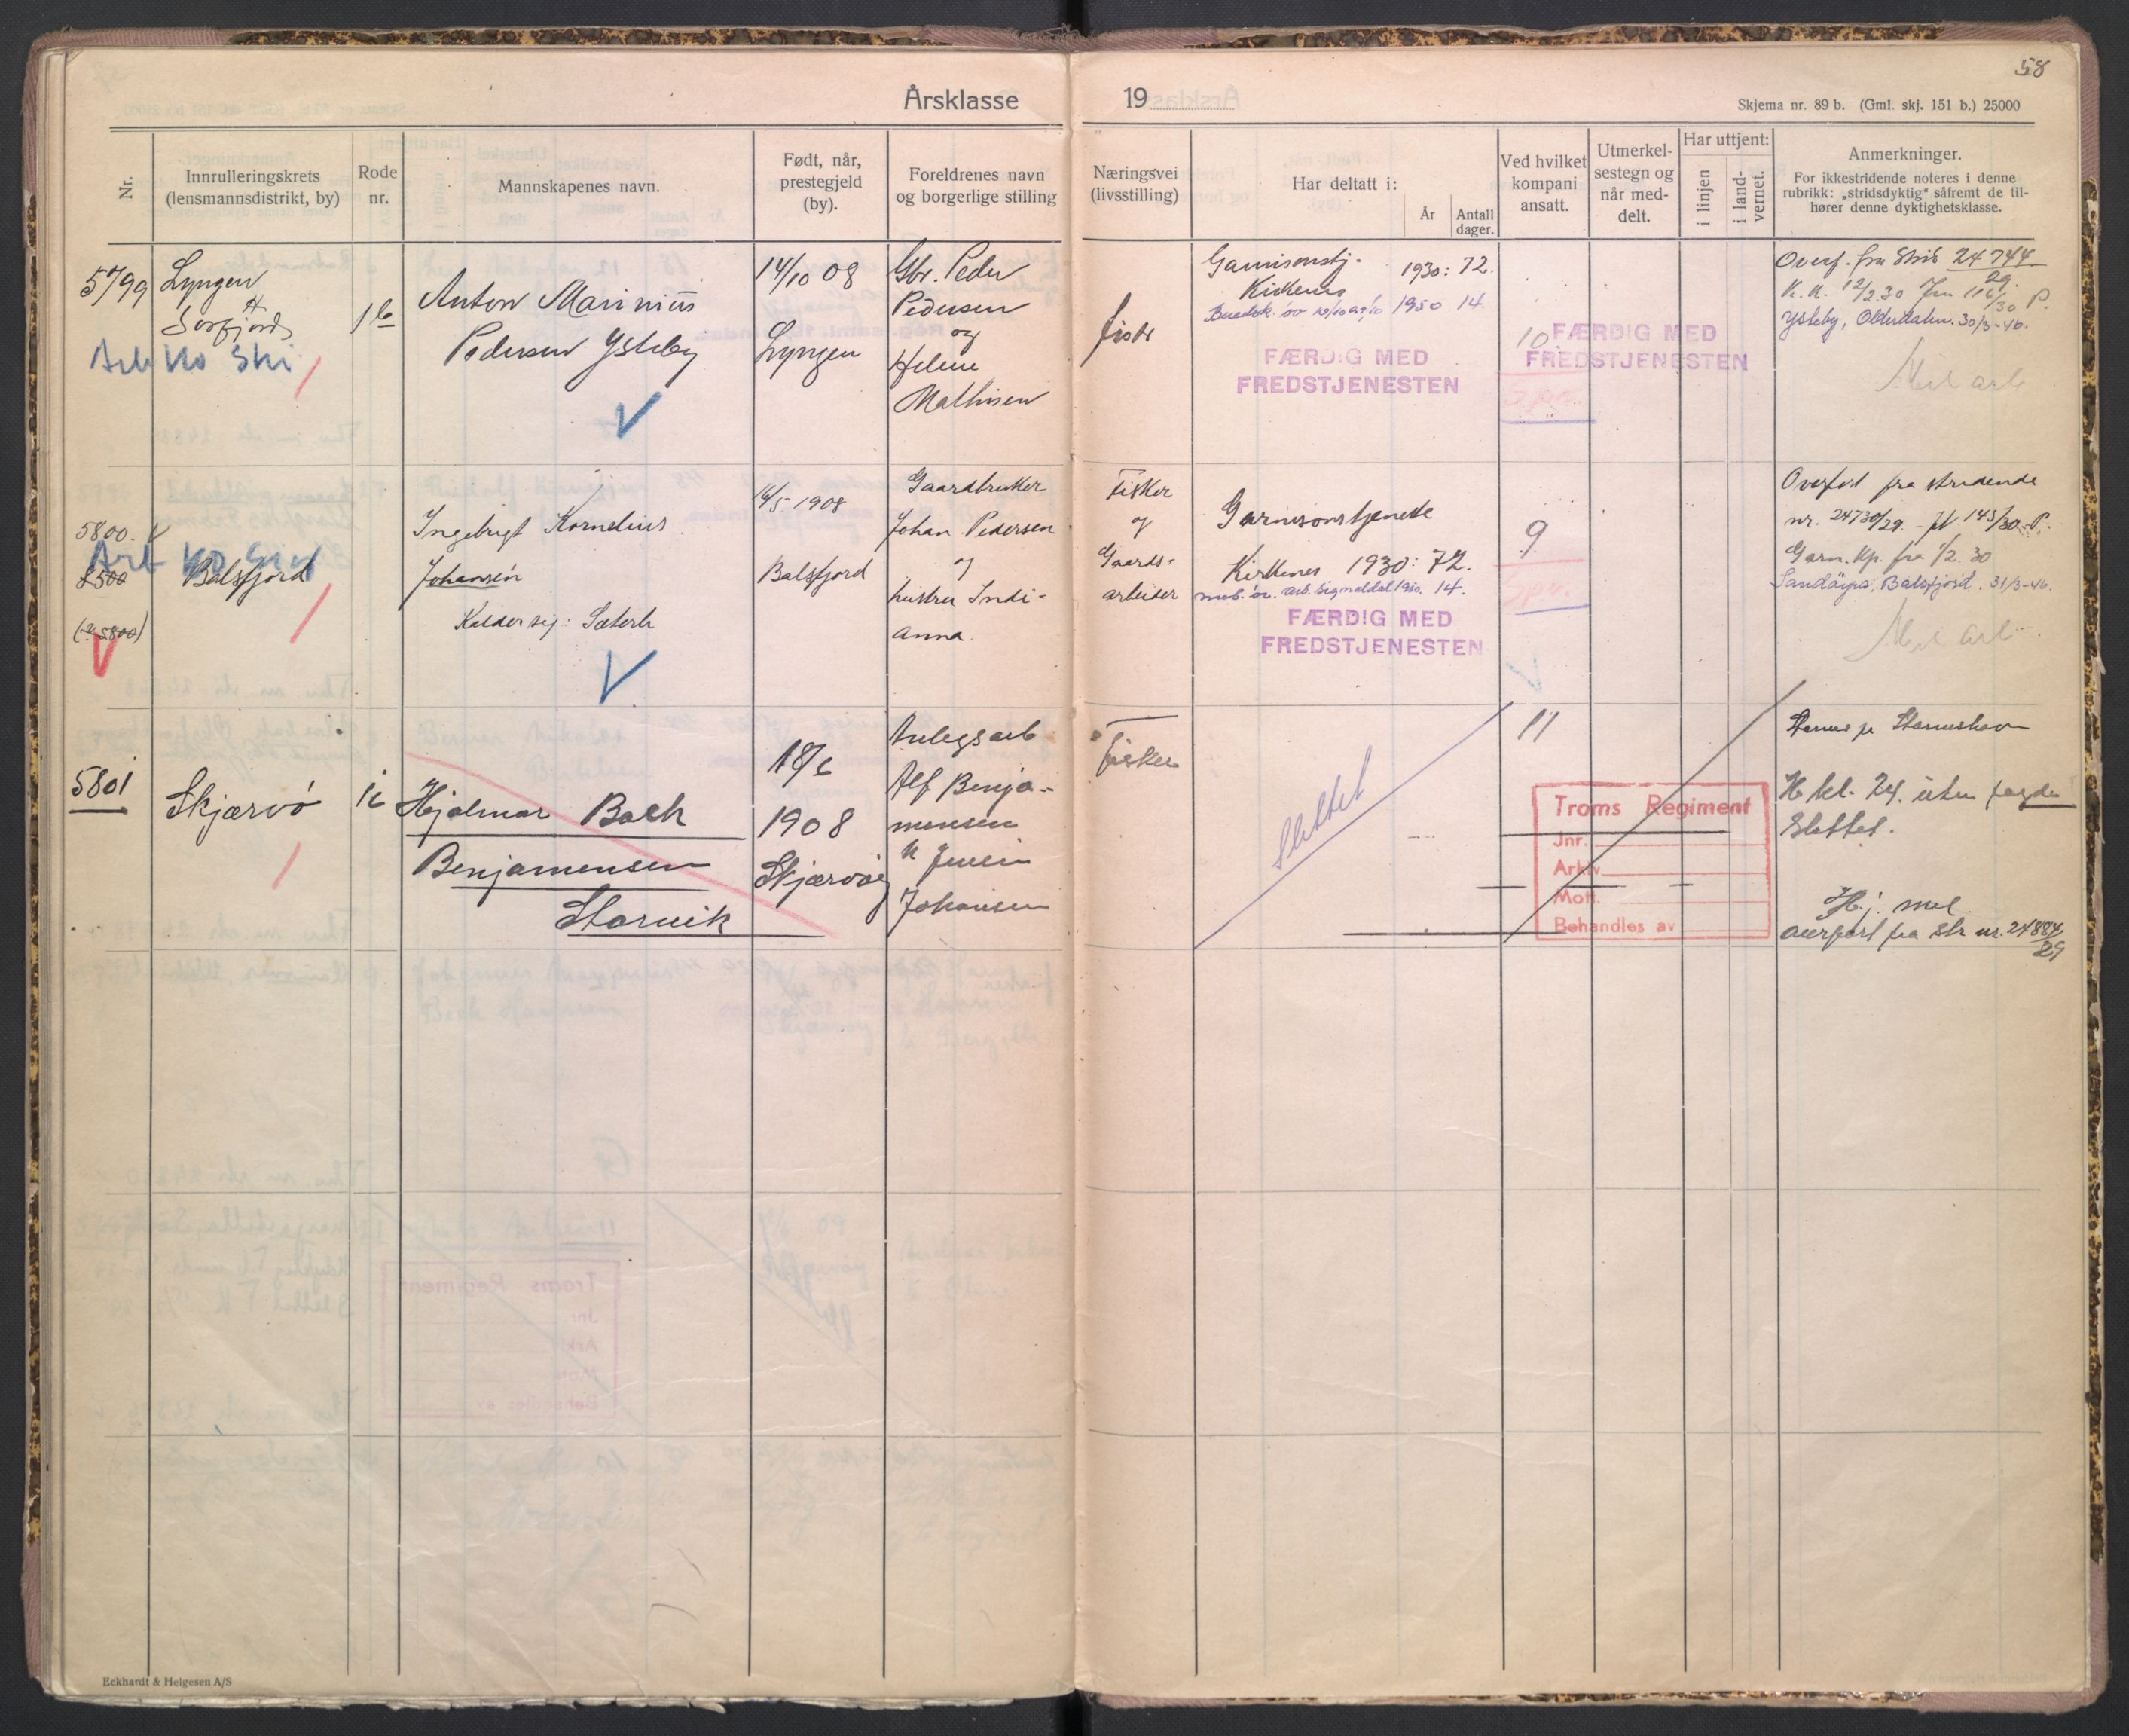 58
Årsklasse 19
Skjema nr. 89 b. (Gml. skj. 151 b.) 25000
Nr.
Innrulleringskrets
(lensmannsdistrikt, by)
Rode
nr.
Mannskapenes navn.
Født, når,
prestegjeld
(by).
Foreldrenes navn
og borgerlige stilling
Næringsvei
(livsstilling)
Har deltatt i:
År
Antall
dager.
Ved hvilket
kompani
ansatt.
Utmerkel-
sestegn og
når med-
delt.
Har uttjent:
i linjen
i land-
vernet.
Anmerkninger.
For ikkestridende noteres i denne
rubrikk: „stridsdyktig“ såfremt de til-
hører denne dyktighetsklasse.
5799
Lyngen
Sørfjord
Arb Ko Ski
16
Anton Marinius
Pedersen Ysteby
14/10 08
Lyngen
Gbr. Peder
Pedersen
og
Helene
Mathisen
fisk
Garnisonstj.
Kirkenes
1930: 72.
1950 14.
FÆRDIG MED
FREDSTJENESTEN
10
FÆRDIG MED
FREDSTJENESTEN
Overf. fra Strid 24744
29.
K.K. 12/2 30
Ysteby, Olderdalen. 30/3-46.
Mil arb
5800
Arb Ko
5500
(5800)
Balsfjord
Ingebrigt Kornelius
Johansen
Kalder sig: Sæterli
16/5 1908
Balsfjord
Gaardbruker
Johan Pedersen
og
hustru Indi-
anna.
Fisker
og
Gaards-
arbeider
Garnisonstjeneste
Kirkenes 1930: 72.
mob. øv. arb. Signaldal 1950. 14.
FÆRDIG MED
FREDSTJENESTEN
9
Overført fra stridende
nr. 24730/29 - 143/30-P.
Garn.Kp. fra 1/2 30
Sandøyra, Balsfjord. 31/3-46.
Mil arb
5801
Skjærvö
Hjalmar Bach
Benjamensen
Storvik
18/6
1908
Skjærvöy
Anlegsarb
Alf Benja-
mensen
Johansen
Fisker
Slettet
11
Troms Regiment
Jnr.
Arkiv
Mott.
Behandles av
Slettet.
Hj. mel
overført fra Str nr. 24884
29
Eckhardt & Helgesen A/S